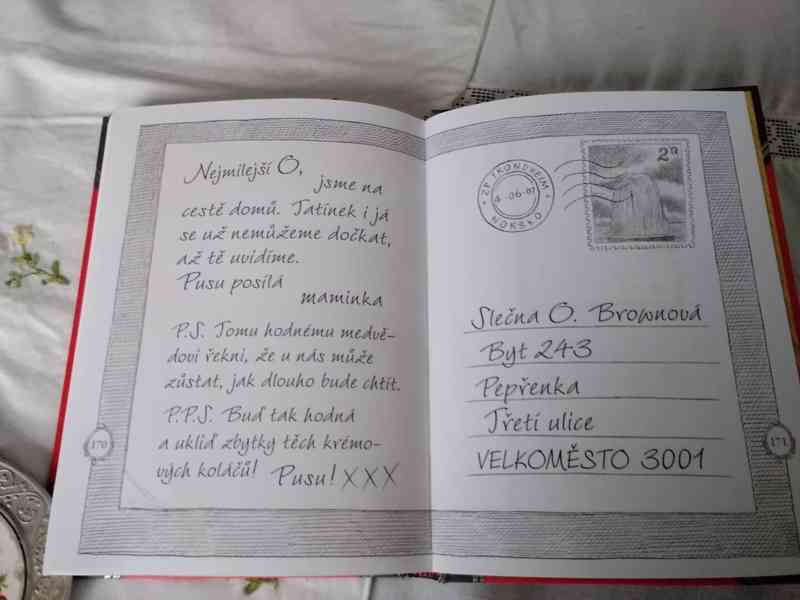 Nejmilejší O,
jsme na
cestě domů. Tatínek i já
se už nemůžeme dočkat,
až tě uvidíme.
Pusu posílá
maminka
P.S. Tomu hodnému medvě-
dovi řekni, že u nás může
zůstat, jak dlouho bude chtít.
P.P.S. Buď tak hodná
a ukliď zbytky těch krémo-
vých koláčů! Pusu! XXX
170
ZP TRONDHEIM
4-06-07
NORSKO
2a
Slečna O. Brownová
Byt 243
Pepřenka
Třetí ulice
VELKOMĚSTO 3001
171